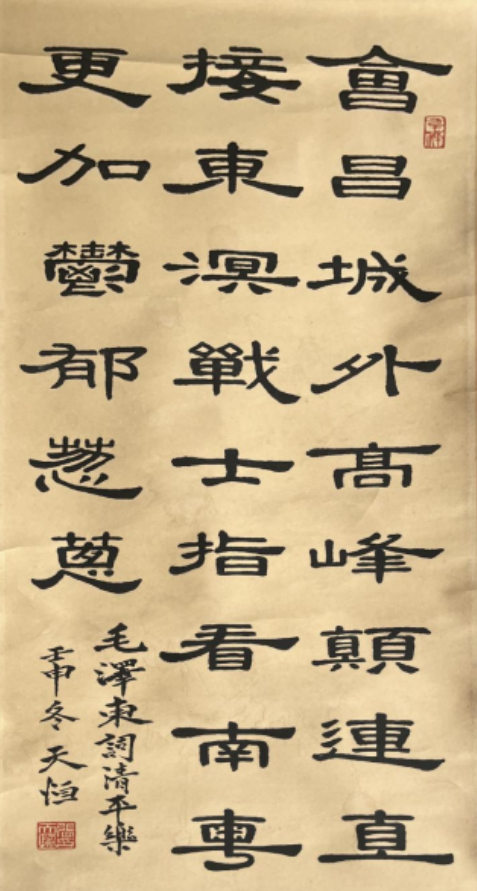 會昌城外髙峰顛連直
接東溟戰士指看南粵
更加鬱郁葱蔥
毛澤東詞清平樂
壬申冬天恒